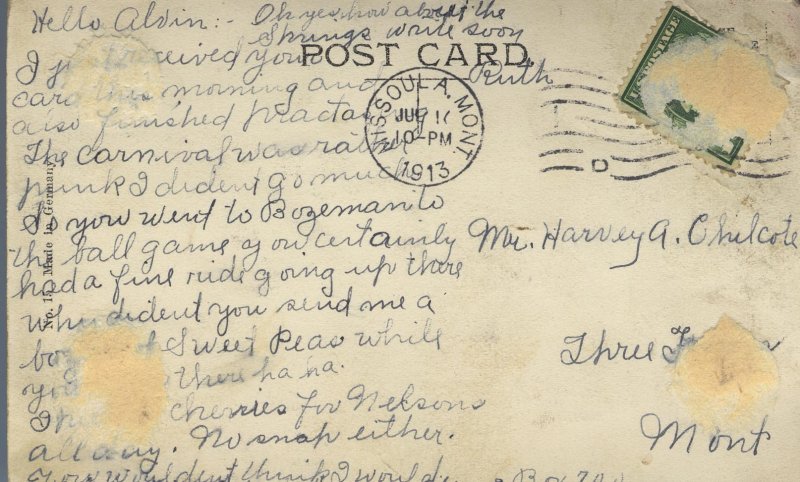 Hello Alvin :- Oh yes, how about the
Springs write soon
Ruth
POST CARD.
MISSOULA, MONT.
10-PM
1913
POSTAGE
I received your
card this morning and
also finished
The carnival was rather
punk I dident go much
So you went to Bozeman to
the ball game you certainly
had a fine ride going up there
why dident you send me a
Sweet Peas while
there ha ha.
I cherries for Nelsons
all day. No snap either.
You wouldent think I would
Mr. Harvey A. Chilcote
Three
Mont
No. 15 Made in Germany